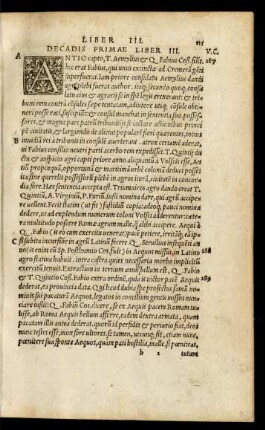 LIBER III. 115
DECADIS PRIMAE LIBER III. V.C.
A
ANTIO capto, T. Aemylius & Q. Fabius Coss. fiūt. 287
hic erat Fabius, qui unus extinctæ ad Cremerā gēti
superfuerat. Iam priore consulatu Aemylius dandi
agri plebi fuerat author. itaq; secundo quoq; consu
latu eius & agrarij se in spē legis erexerant: & tri
buni rem contra
possessores, & magna pars
pà ciuitate, &
B
et Fabius consilio neuera parti acerbo rem expediſſit. T. Quintij du
ctu & auspicio agri capti priore anno aliquantū à Volscis esse, An
tium propinquā, opportunā & maritimā urbem coloniā deduci posse.
ita sine querelis possessorū plebem in agros ituram, ciuitatē in concor
dia fore. Hæc sententia accepta est. Triumuiros agro dando creat T.
Quintiū, A. Virginiū, P. Furiū. iussi nomina dare, qui agrū accipere
uellent. fecit statim (ut fit) fastidiū copia: adeoq; pauci nomina
dedere, ut ad explendum numerum coloni Volsci adderentur: cætera
multitudo poscere Romæ agrum malle, q̃ alibi accipere. Aequi à
Q. Fabio (is eò cum exercitu uenerat) pacē petiere, irritāq; eā ip-
C
si subita incursione in agrū Latinū fecere. Q. Seruilius insequēti an
no (is enim cū Sp. Posthumio Cos. fuit) in Aequos missus, in Latino 288
agro statiua habuit. intra castra quies necessaria morbo implicitū
exercitū tenuit. Extractum in tertium annū bellum est, Q. Fabio
& T. Quintio Coss. Fabio extra ordinē, quia is uictor pacē Aequis 289
dederat, ea prouincia data. Qui haud dubia spe profectus famā no-
minis sui pacaturā Aequos, legatos in concilium gentis missos nun-
ciare iussit: Q. Fabiū Cos. dicere, se ex Aequis pacem Romam tu-
lisse, ab Roma Aequis bellum afferre, eadem dextera armata, quam
pacatam illis antea dederat. quorū id perfidia & periurio fiat, deos
nunc testes esse, mox fore ultores. se tamen, utcunq; sit, etiam nunc,
pœnitere sua sponte Aequos, quàm pati hostilia, malle. si pœniteat,
h 2 tutum